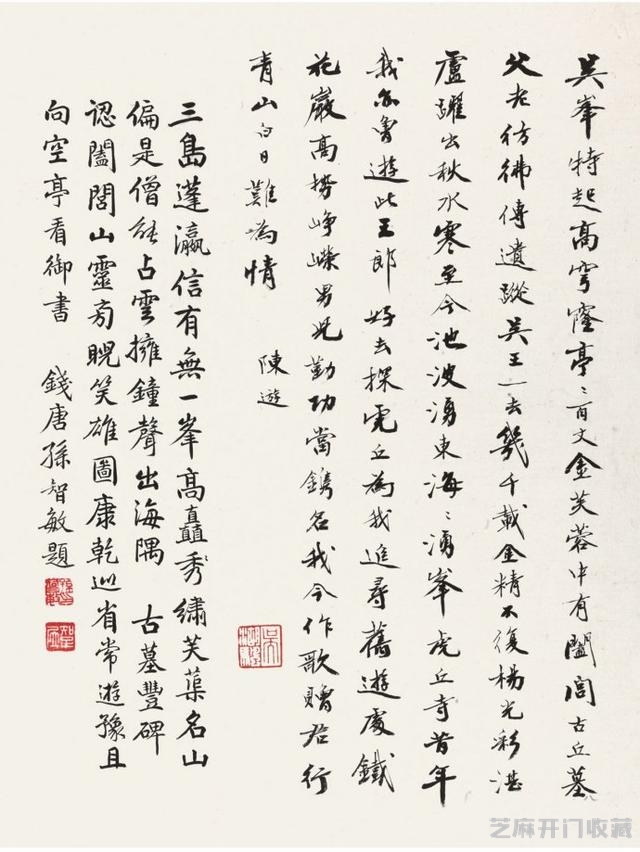 吳峯特起高穹窿亭亭百丈金芙蓉中有闔閭古丘墓
父老彷彿傳遺蹤吳王一去幾千載金精不復楊光彩湛
盧躍出秋水寒至今池波湧東海海湧峯虎丘寺昔年
我亦曾遊此王郎好去探虎丘為我追尋舊遊處鐵
花巖高勢崢嶸男兒勤功當鐫名我今作歌贈君行
青山白日難為情
陳遊
三島蓬瀛信有無一峯高矗秀繡芙蕖名山
偏是僧能占雲擁鐘聲出海隅 古墓豐碑
認闔閭山靈旁睨笑雄圖康乾巡省常遊豫且
向空亭看御書 錢唐孫智敏題
芝麻开门收藏